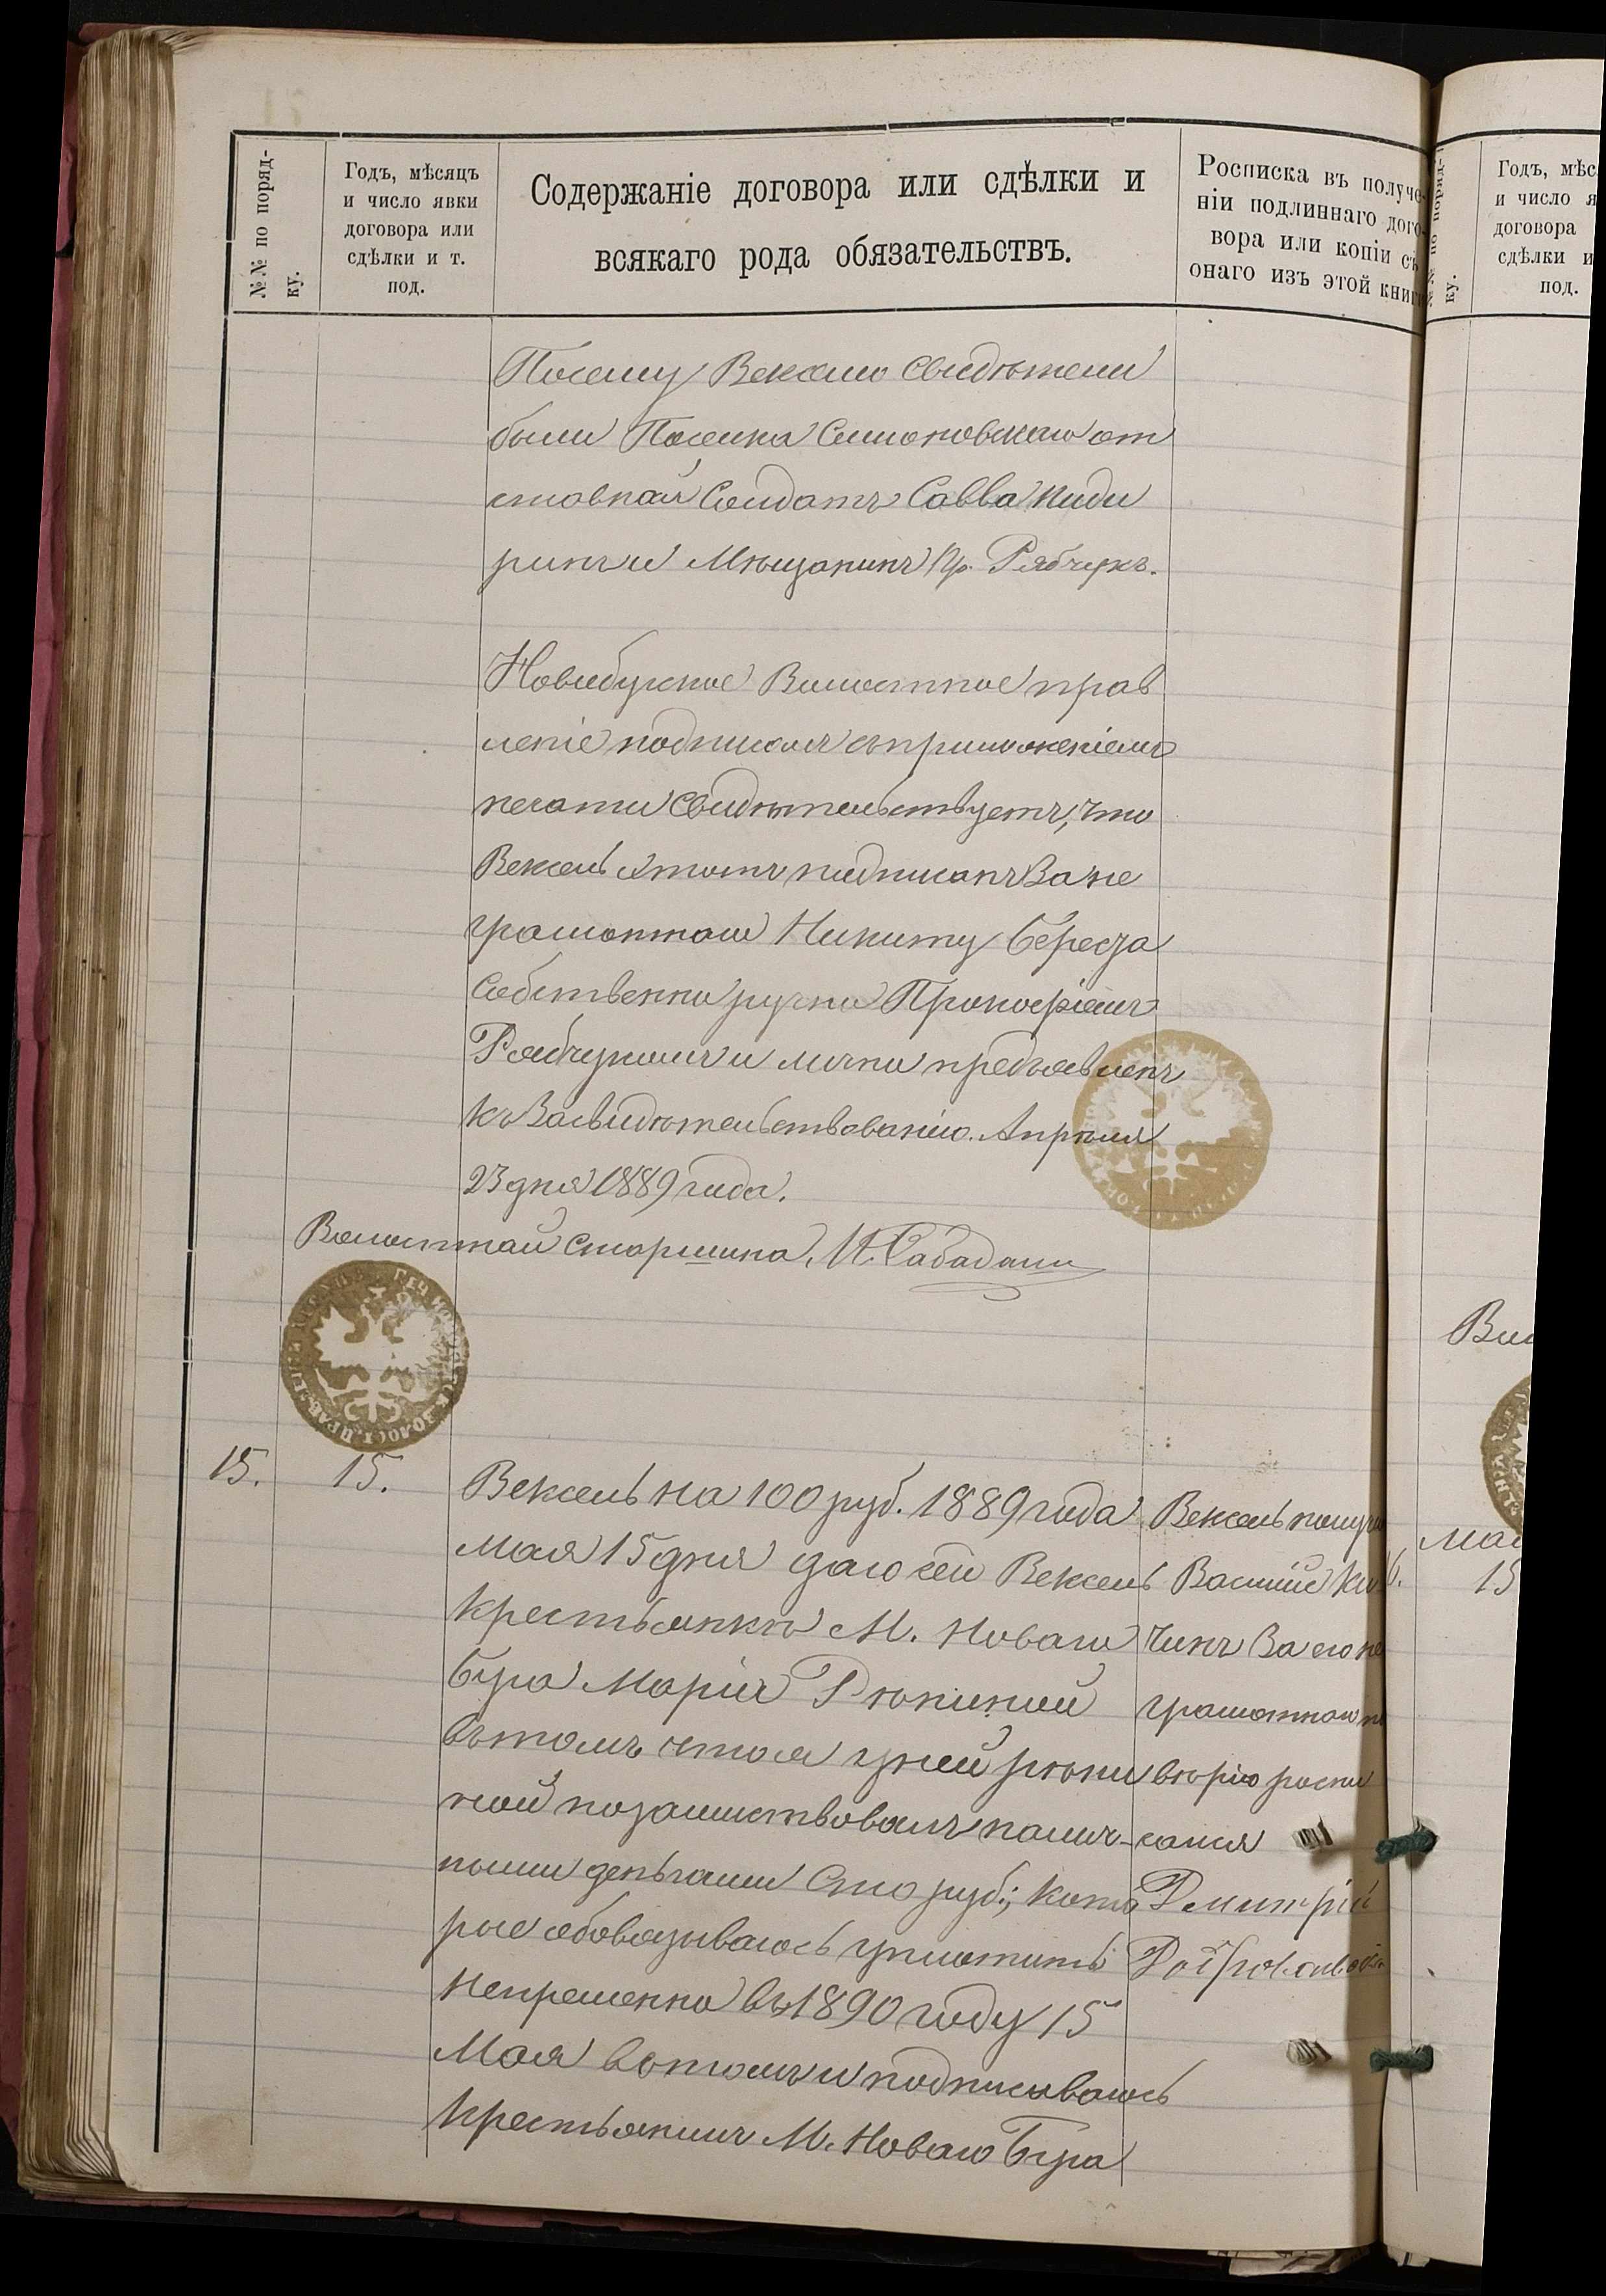 №№ по поряд-
ку.
Годъ, мѣсяцъ
и число явки
договора или
сдѣлки и т.
под.
Содержаніе договора или сдѣлки и
всякаго рода обязательствъ.
Росписка въ получе-
ніи подлиннаго дого-
вора или копіи съ
онаго изъ этой книги
Посему Векселю свидѣтели
были Поселка Симоновскаго от
ставной Солдатъ Савва
и Мѣщанинъ Пр. Рябчукъ.
Новобугское Волостное прав
леніе подписомъ съ приложеніемъ
печати свидѣтельствуетъ, что
Вексель этотъ подписанъ За не
грамотнаго Никиту Береза
Собственноручно Прокофіемъ
Рябчукомъ и лично предъявленъ
къ Засвидѣтельствованію. Апрѣля
23 дня 1889 года.
Волостной Старшина, И. Сабадаш
15.
15.
Вексель на 100 руб. 1889 года
Мая 15 дня даю сей Вексель
Крестьянкѣ М. Новаго
Буга Маріи Рѣпиной
въ томъ что я у ней рѣпи
ной позаимствовалъ налич-
ными деньгами Сто руб., кото
рые обовязываюсь уплатить
Непременно въ 1890 году 15
Мая въ томъ и подписываюсь
Крестьянинъ М. Новаго Буга
Вексель получи
Василій
чинъ За его не
грамотнаго по
вѣрію роспи
сался
Дмитрій
Годъ, мѣс
и число я
договора
сдѣлки и
под.
ку.
Мая
15